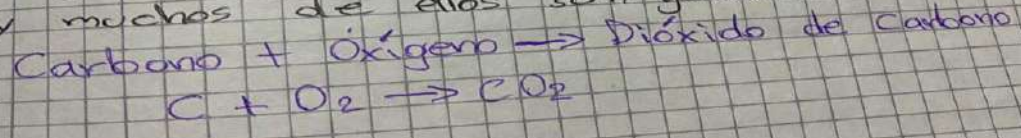 y muchos de ellos son
Carbono + Óxígeno → Dióxido de Carbono
C + O₂ → CO₂